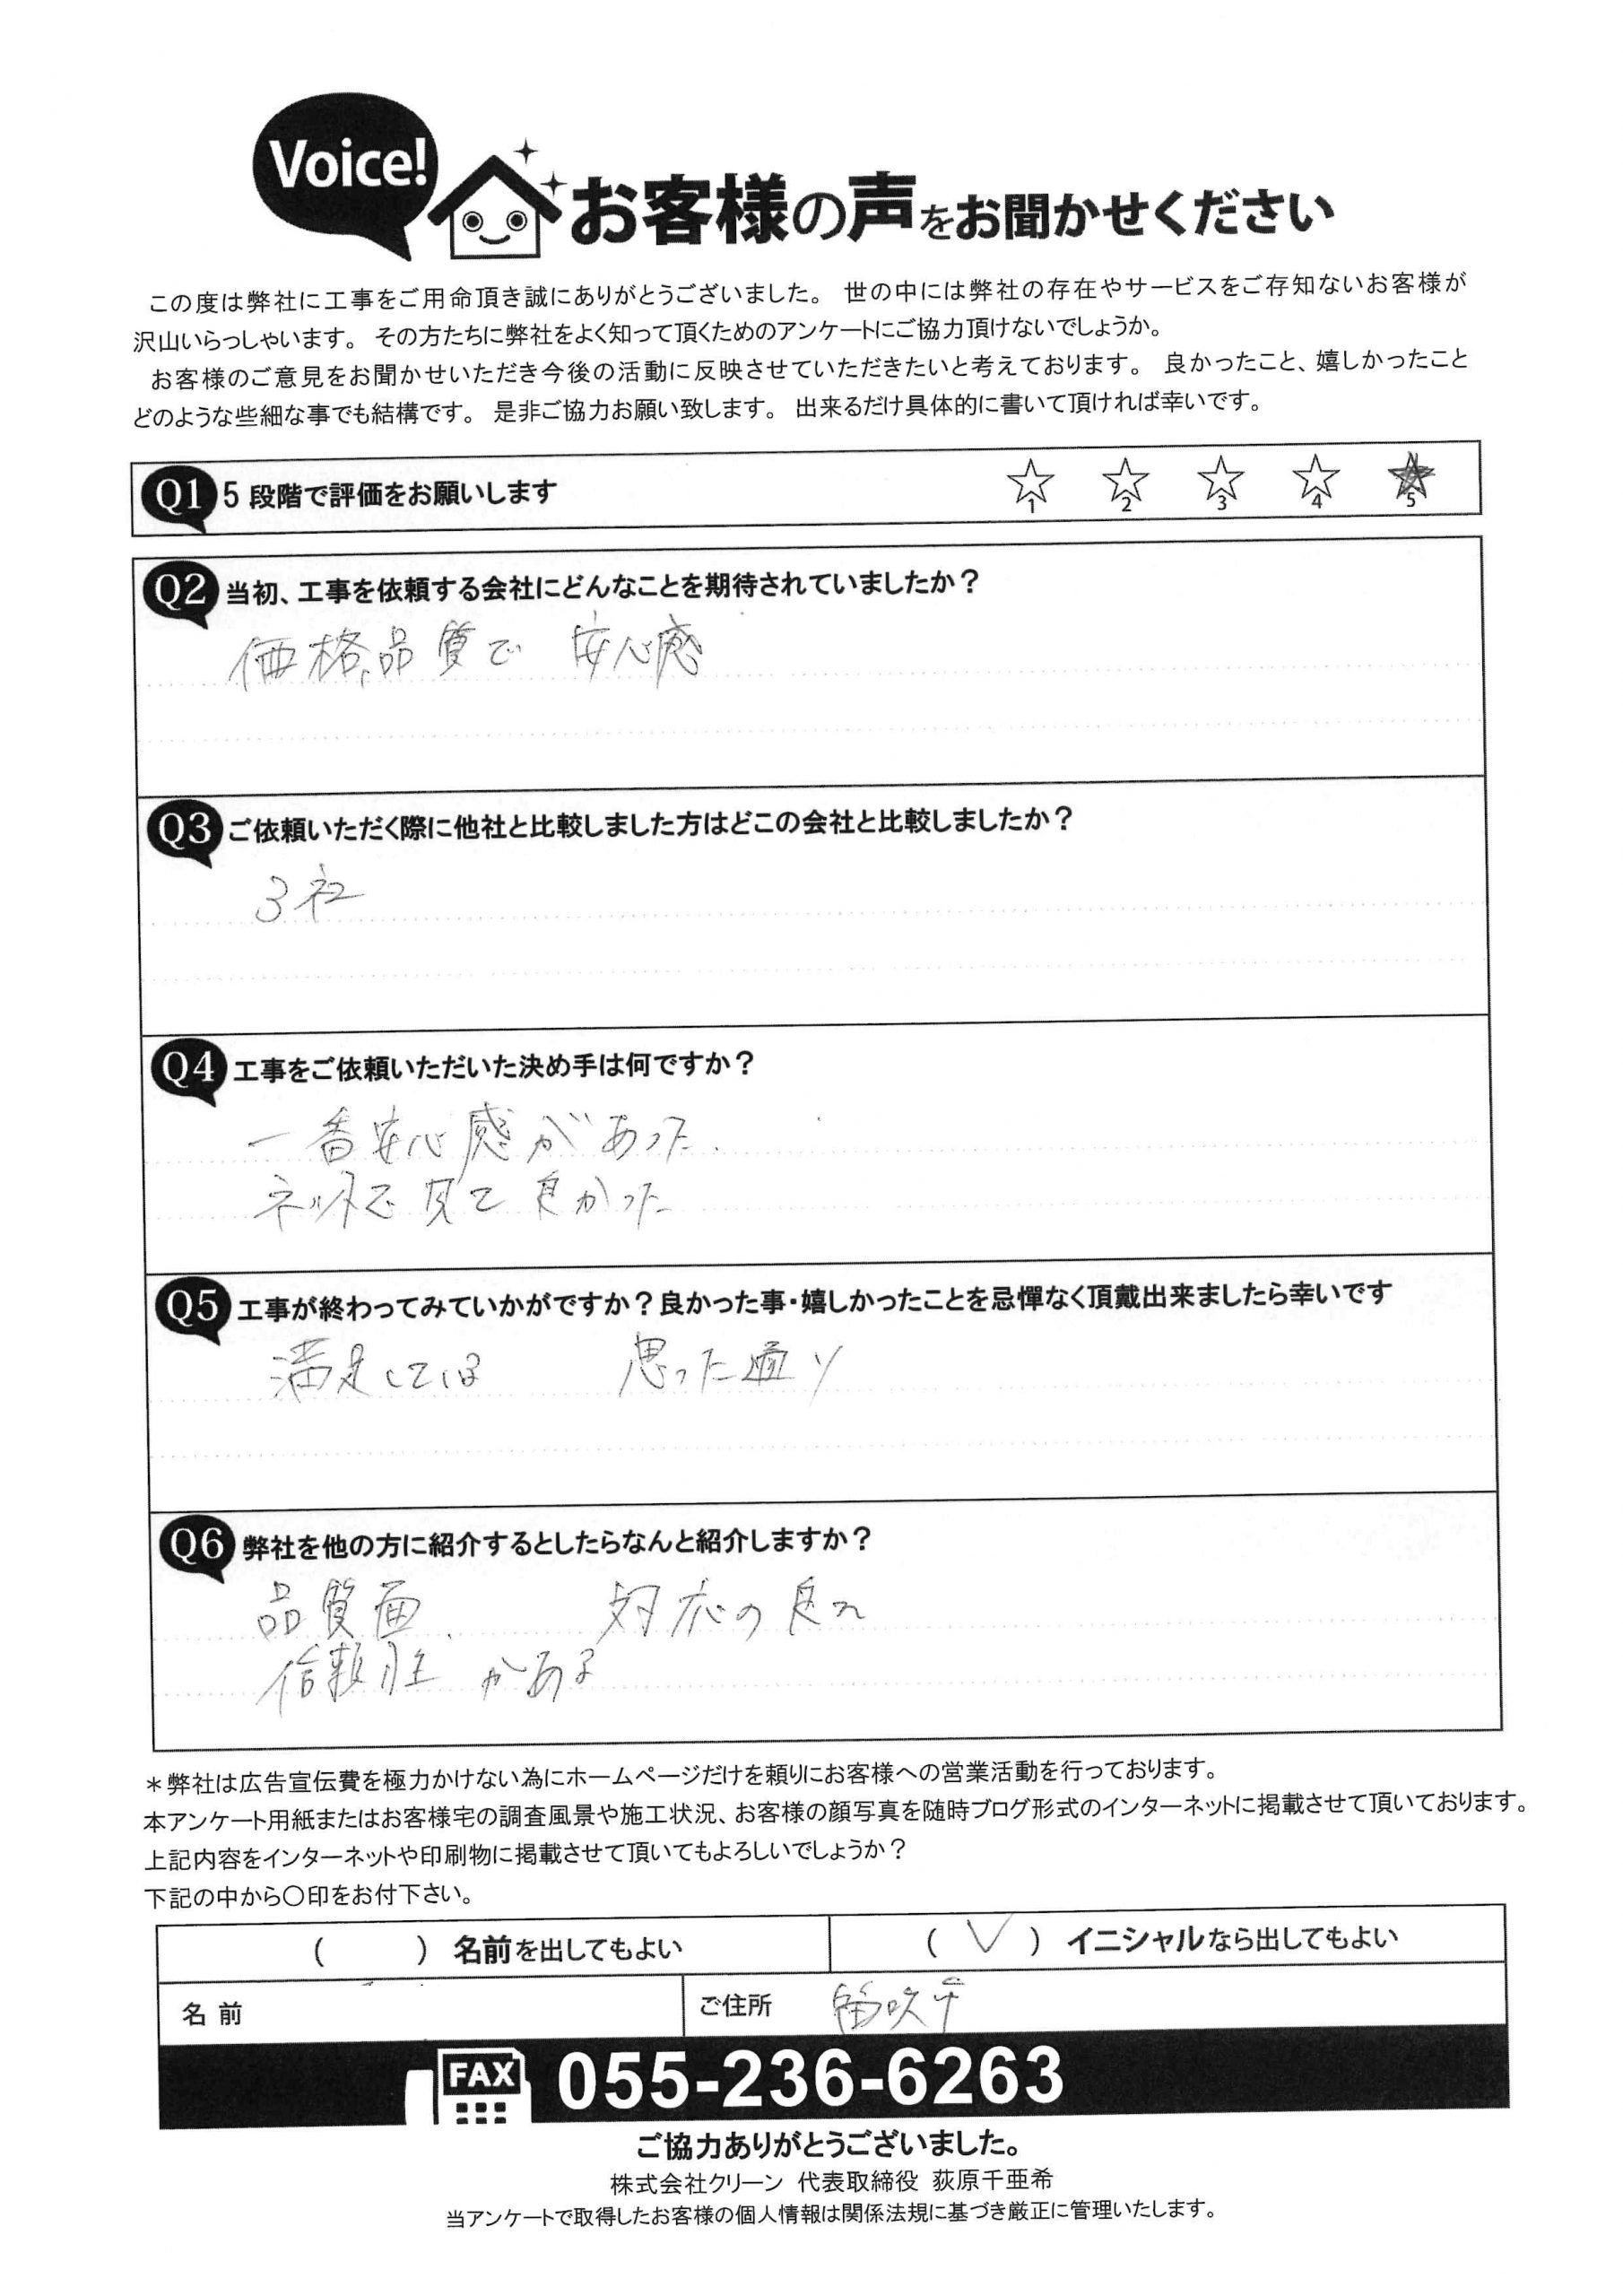 Voice!
お客様の声をお聞かせください
この度は弊社に工事をご用命頂き誠にありがとうございました。 世の中には弊社の存在やサービスをご存知ないお客様が
沢山いらっしゃいます。 その方たちに弊社をよく知って頂くためのアンケートにご協力頂けないでしょうか。
お客様のご意見をお聞かせいただき今後の活動に反映させていただきたいと考えております。 良かったこと、嬉しかったこと
どのような些細な事でも結構です。 是非ご協力お願い致します。 出来るだけ具体的に書いて頂ければ幸いです。
Q1 5 段階で評価をお願いします 1 2 3 4 5
Q2 当初、工事を依頼する会社にどんなことを期待されていましたか？
価格、品質で 安心感
Q3 ご依頼いただく際に他社と比較しました方はどこの会社と比較しましたか？
3社
Q4 工事をご依頼いただいた決め手は何ですか？
一番安心感があった.
ネットで見て良かった
Q5 工事が終わってみていかがですか？良かった事・嬉しかったことを忌憚なく頂戴出来ましたら幸いです
満足している 思った通り
Q6 弊社を他の方に紹介するとしたらなんと紹介しますか？
品質面、 対応の良さ
信頼性がある
＊弊社は広告宣伝費を極力かけない為にホームページだけを頼りにお客様への営業活動を行っております。
本アンケート用紙またはお客様宅の調査風景や施工状況、お客様の顔写真を随時ブログ形式のインターネットに掲載させて頂いております。
上記内容をインターネットや印刷物に掲載させて頂いてもよろしいでしょうか？
下記の中から〇印をお付下さい。
( ) 名前を出してもよい ( ✓ ) イニシャルなら出してもよい
名 前 ご住所 笛吹市
FAX 055-236-6263
ご協力ありがとうございました。
株式会社クリーン 代表取締役 荻原千亜希
当アンケートで取得したお客様の個人情報は関係法規に基づき厳正に管理いたします。